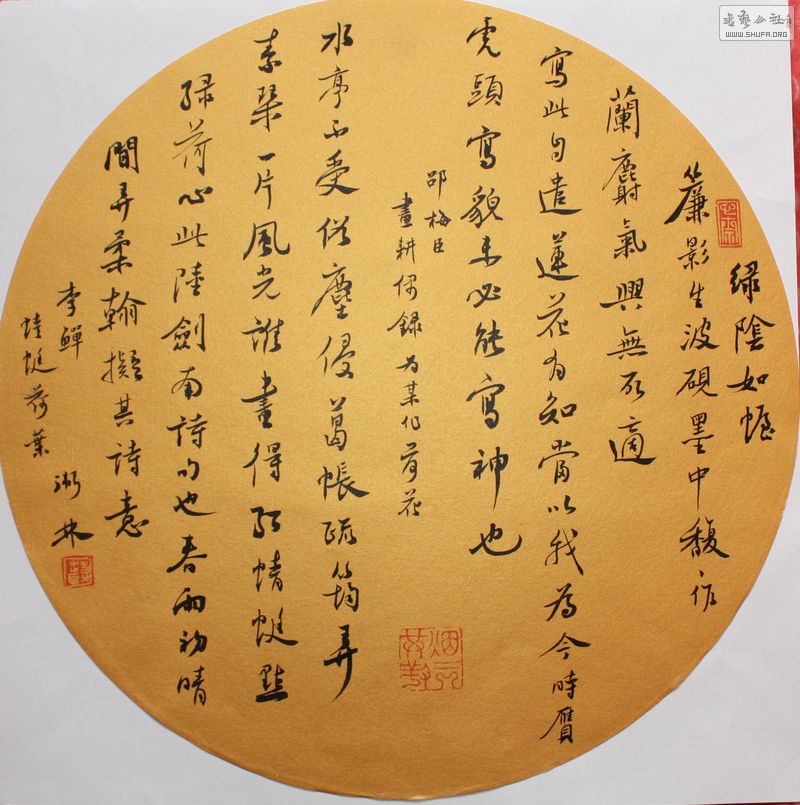 绿陰如幄
簾影生波硯墨中馥馥作
蘭麝氣興無不適
寫此自遣蓮花有知當以我為今時贋
虎頭寫貌未必能寫神也
邵梅臣
畫耕偶錄為某作荷花
水亭不受俗塵侵葛帳疏筠弄
素琴一片風光誰畫得紅蜻蜓點
绿荷心此陸劍南詩句也春雨初晴
間弄柔翰擬其詩意
李鱓
蜻蜓荷葉
書藝公社
WWW.SHUFA.ORG